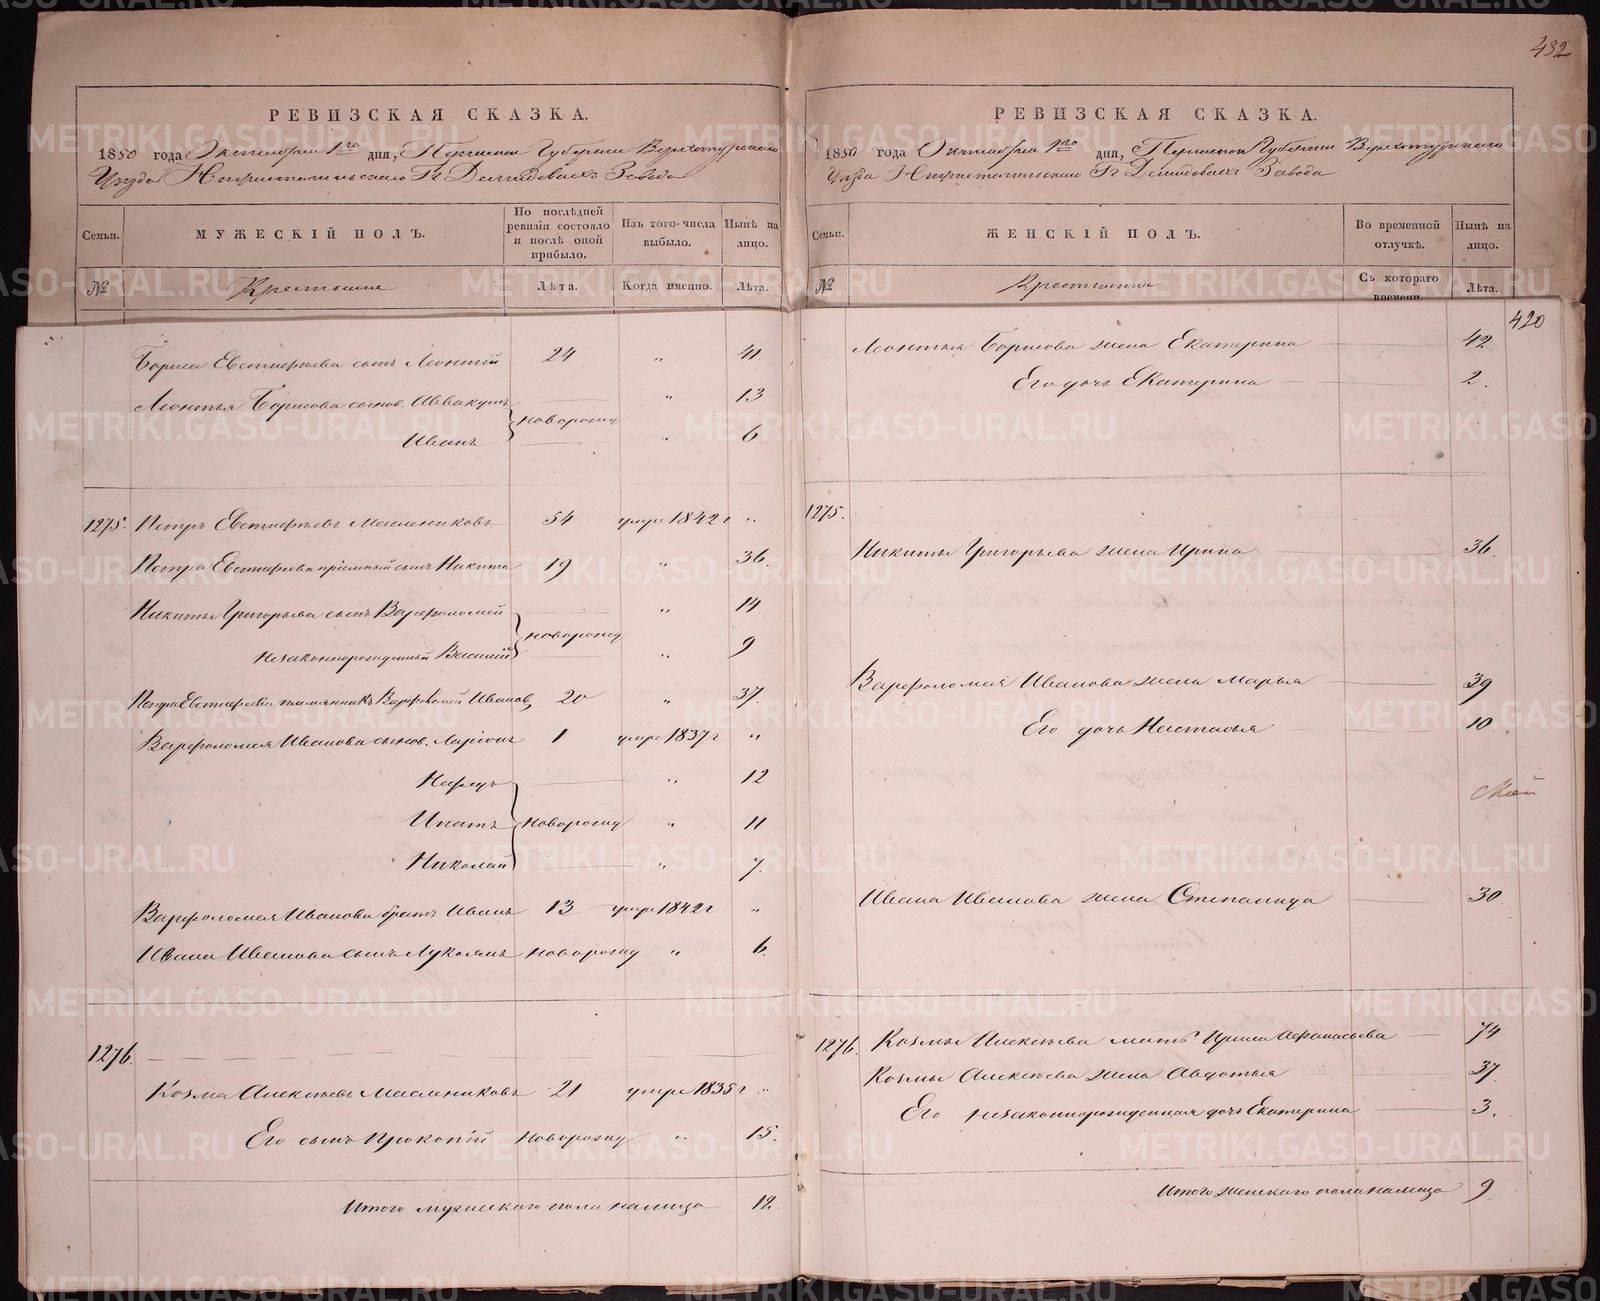 432
РЕВИЗСКАЯ СКАЗКА.
1850 года Октября 1го дня, Пермской Губернии Верхотурского
Уезда Нижнетагильского Гг Демидовыхъ Завода
Семьи.
МУЖЕСКІЙ ПОЛЪ.
По послѣдней ревизіи состояло и послѣ оной прибыло.
Изъ того числа выбыло.
Нынѣ на лицо.
№
Крестьяне
Лѣта.
Когда именно.
Лѣта.
Бориса Евстифѣева сынъ Леонтій 24 " 41.
Леонтья Борисова сынов. Аввакумъ " 13
новорожд
Иванъ " 6
1275. Петръ Евстифѣевъ Масленниковъ 54 умре 1842 г "
Петра Евстифѣева пріемный сынъ Никита 19 " 36.
Никиты Григорьева сынъ Варфоломей " 14
новорожд
Незаконнорожденный Василій " 9
Петра Евстифѣева племянникъ Варфоломей Ивановъ 20 " 37.
Варфоломея Иванова сынов. Ларіонъ 1 умре 1837 г "
Карпъ " 12
Ипатъ новорожд " 11
Николай " 7.
Варфоломея Иванова братъ Иванъ 13 умре 1842 г "
Ивана Иванова сынъ Лукоянъ новорожд " 6.
1276.
Козма Алексѣевъ Масленниковъ 21 умре 1835 г "
Его сынъ Прокопій новорожд " 15.
Итого мужескаго пола налицо 12.
РЕВИЗСКАЯ СКАЗКА.
1850 года Октября 1го дня, Пермской Губерніи Верхотурскаго
Уезда Нижнетагильского Гг Демидовыхъ Завода
Семьи.
ЖЕНСКІЙ ПОЛЪ.
Во временной отлучкѣ.
Нынѣ на лицо.
№
Крестьянки
Съ котораго времени.
Лѣта.
420
Леонтья Борисова жена Екатерина 42
Его дочь Екатерина 2.
1275.
Никиты Григорьева жена Ирина 36.
Варфоломея Иванова жена Марья 39
Его дочь Настасья 10
Ивана Иванова жена Степанида 30
1276. Козмы Алексѣева мать Ирина Афанасьева 74
Козмы Алексѣева жена Авдотья 37
Его незаконнорожденная дочь Екатерина 3.
Итого женскаго пола налицо 9
METRIKI.GASO-URAL.RU